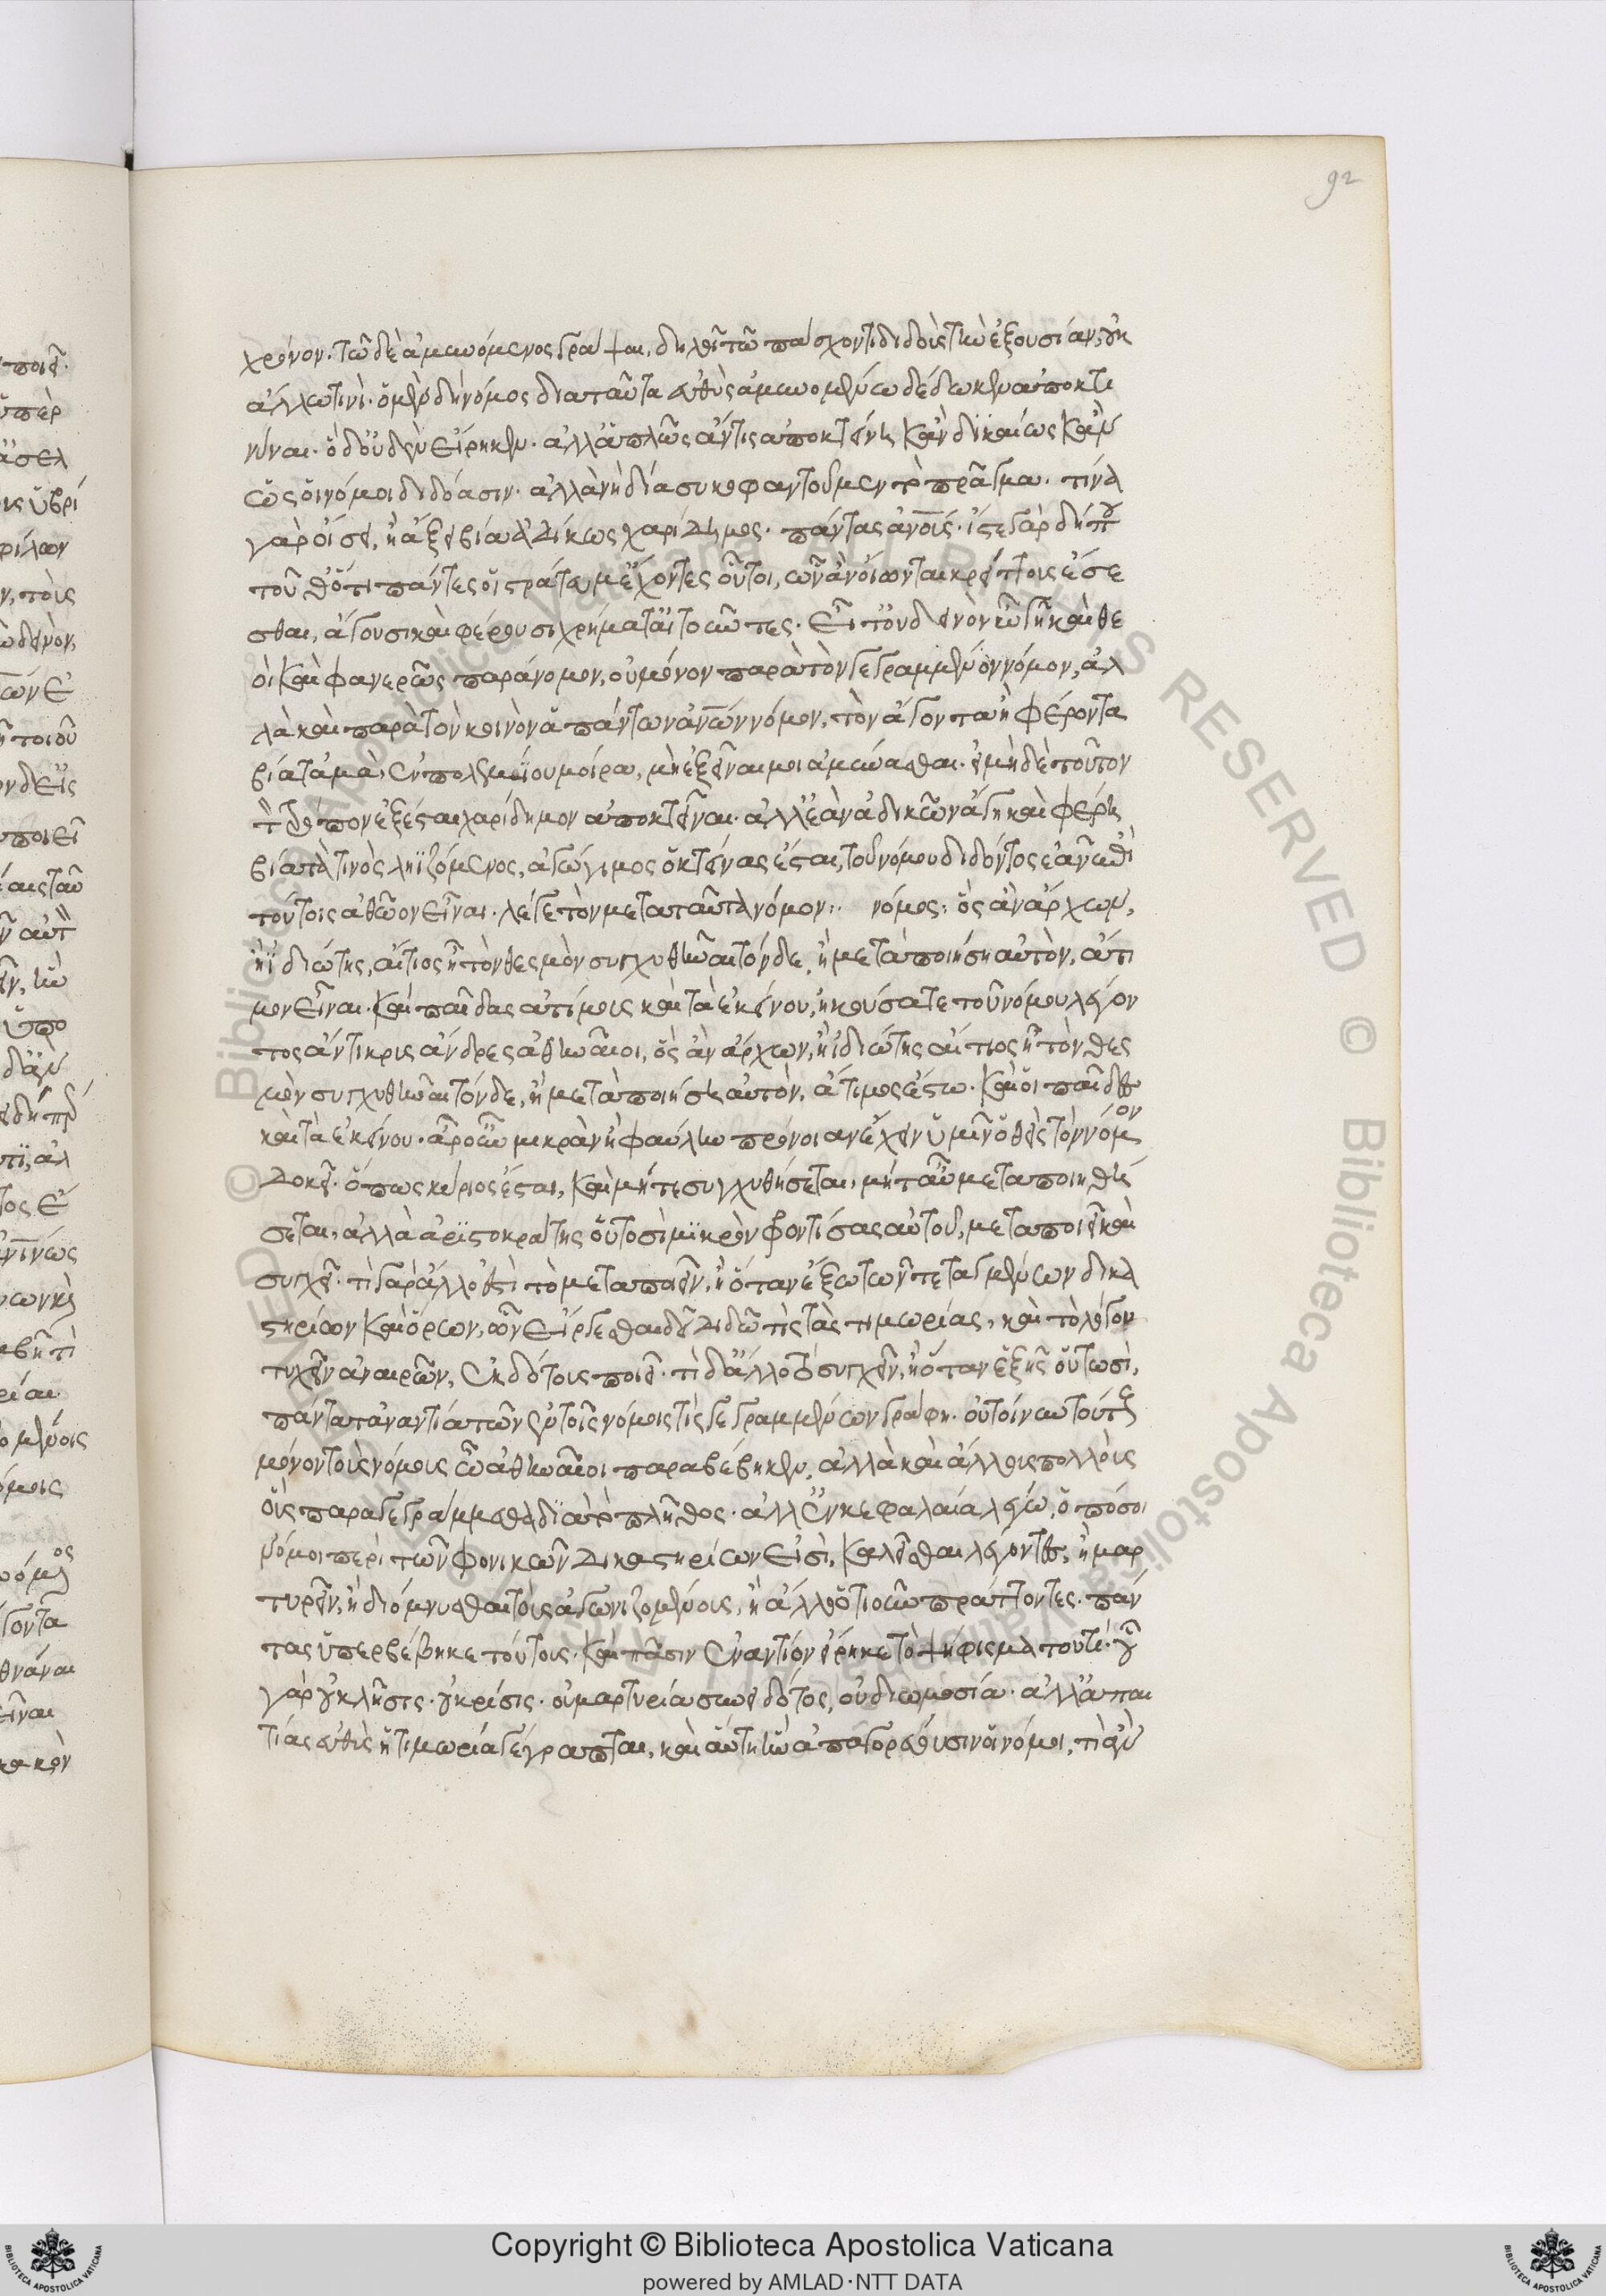 χρόνον· τῶ δὲ ἀμυνόμενος γράψαι, δηλοῖ τῶ πάσχοντι διδοὺς τὴν ἐξουσίαν, οὐκ
ἄλλω τινὶ· ὁ μὲν δὴ νόμος διαταῦτα εὐθὺς ἀμυνομένω δέδωκεν ἀποκτι
νύναι· ὁ δ' οὐδὲν εἴρηκεν· ἀλλ' ἁπλῶς ἄν τις ἀποκτείνη, κἂν δικαίως κἂν
ὡς οἱ νόμοι διδόασιν· ἀλλὰ νὴ δία συκοφαντοῦμεν τὸ πρᾶγμα· τίνα
γὰρ οἴσει, ἢ ἄξει βία ἀδίκως χαρίδημος· πάντας ἀνους· ἴστε γὰρ δήπου
τοῦθ' ὅτι πάντες οἱ στράτευμ' ἔχοντες οὗτοι, ὧν ἂν οἴωνται κρείττους ἔσε
σθαι, ἄγουσι καὶ φέρουσι χρήματ' αἰτοῦντες. εἶτ' οὐ δεινὸν ὦ γῆ καὶ θε
οὶ καὶ φανερῶς παράνομον, οὐ μόνον παρὰ τὸν γεγραμμένον νόμον, ἀλ
λὰ καὶ παρὰ τὸν κοινὸν ἁπάντων ἀνων νόμον, τὸν ἄγοντα ἢ φέροντα
βία τἀμὰ, ἐν πολεμίου μοίρα, μὴ ἐξεῖναι μοι ἀμύνασθαι. εἰ μὴδὲ τοῦτον
τὸν τρόπον ἐξέσται χαρίδημον ἀποκτεῖναι· ἀλλ' ἐὰν ἀδικῶν ἄγη καὶ φέρη
βία τὰ τινὸς ληϊζόμενος, ἀγώγιμος ὁ κτείνας ἔσται, τοῦ νόμου διδόντος ἐὰν ἐπὶ
τούτοις ἀθῶον εἶναι. λέγε τὸν μετὰ ταῦτα νόμον: νόμος: ὃς ἂν ἄρχων,
ἢ ἰδιώτης, αἴτιος ἦ τὸν θεσμὸν συγχυθῆναι τόνδε, ἢ μεταποιήση αὐτὸν, ἄτι
μον εἶναι. καὶ παῖδας ἀτίμους καὶ τὰ ἐκείνου, ἠκούσατε τοῦ νόμου λέγον
τος ἄντικρις ἄνδρες ἀθηναῖοι, ὃς ἂν ἄρχων, ἢ ἰδιώτης αἴτιος ἦ τὸν θεσ
μὸν συγχυθῆναι τόνδε, ἢ μεταποιήση αὐτὸν, ἄτιμος ἔστω. καὶ οἱ παῖδες
καὶ τὰ ἐκείνου. ἆρ' οὖν μικρὰν ἢ φαύλην πρόνοιαν ἔχειν ὑμῖν ὁ θεὶς τὸν νόμον
δοκεῖ. ὅπως κύριος ἔσται, καὶ μήτε συγχυθήσεται, μήτ' αὖ μεταποιηθή
σεται, ἀλλὰ ἀριστοκράτης οὑτοσὶ μικρὸν φροντίσας αὐτοῦ, μεταποιεῖ καὶ
συγχεῖ. τί γὰρ ἄλλο ἐστὶ τὸ μεταποιεῖν, ἢ ὅταν ἔξω τῶν τεταγμένων δικα
στηρίων καὶ ὅρων, ὧν εἴργεσθαι δεῖ διδῶ τὶς τὰς τιμωρίας, καὶ τὸ λόγον
τυχεῖν ἀναιρῶν, ἐκδότους ποιεῖ. τί δ' ἄλλο τὸ συγχεῖν, ἢ ὅταν ἑξῆς οὑτωσὶ,
πάντα τἀναντία τῶν ἐν τοῖς νόμοις τὶς γεγραμμένων γράφη. οὐ τοίνυν τούτους
μόνον τοὺς νόμους ὦ ἀθηναῖοι παραβέβηκεν, ἀλλὰ καὶ ἄλλους πολλοὺς
οὓς παραγεγράμμεθα διὰ τὸ πλῆθος. ἀλλ' ἐν κεφαλαίω λέγω, ὁπόσοι
νόμοι περὶ τῶν φονικῶν δικαστηρίων εἰσὶ, καλεῖσθαι λέγοντες, ἢ μαρ
τυρεῖν, ἢ διόμνυσθαι τοὺς ἀγωνιζομένους, ἢ ἄλλο ὁτιοῦν πράττοντες. πάν
τας ὑπερβέβηκε τούτους. καὶ πᾶσιν ἐναντίον εἴρηκε τὸ ψήφισμα τουτί. οὐ
γὰρ οὐ κλῆσις. οὐ κρίσις. οὐ μαρτυρία συνειδότος, οὐ διωμοσία. ἀλλ' ἀπαι
τίας εὐθὺς ἡ τιμωρία γέγραπται, καὶ αὕτη ἣν ἀπαγορεύουσιν οἱ νόμοι, τί ἂν